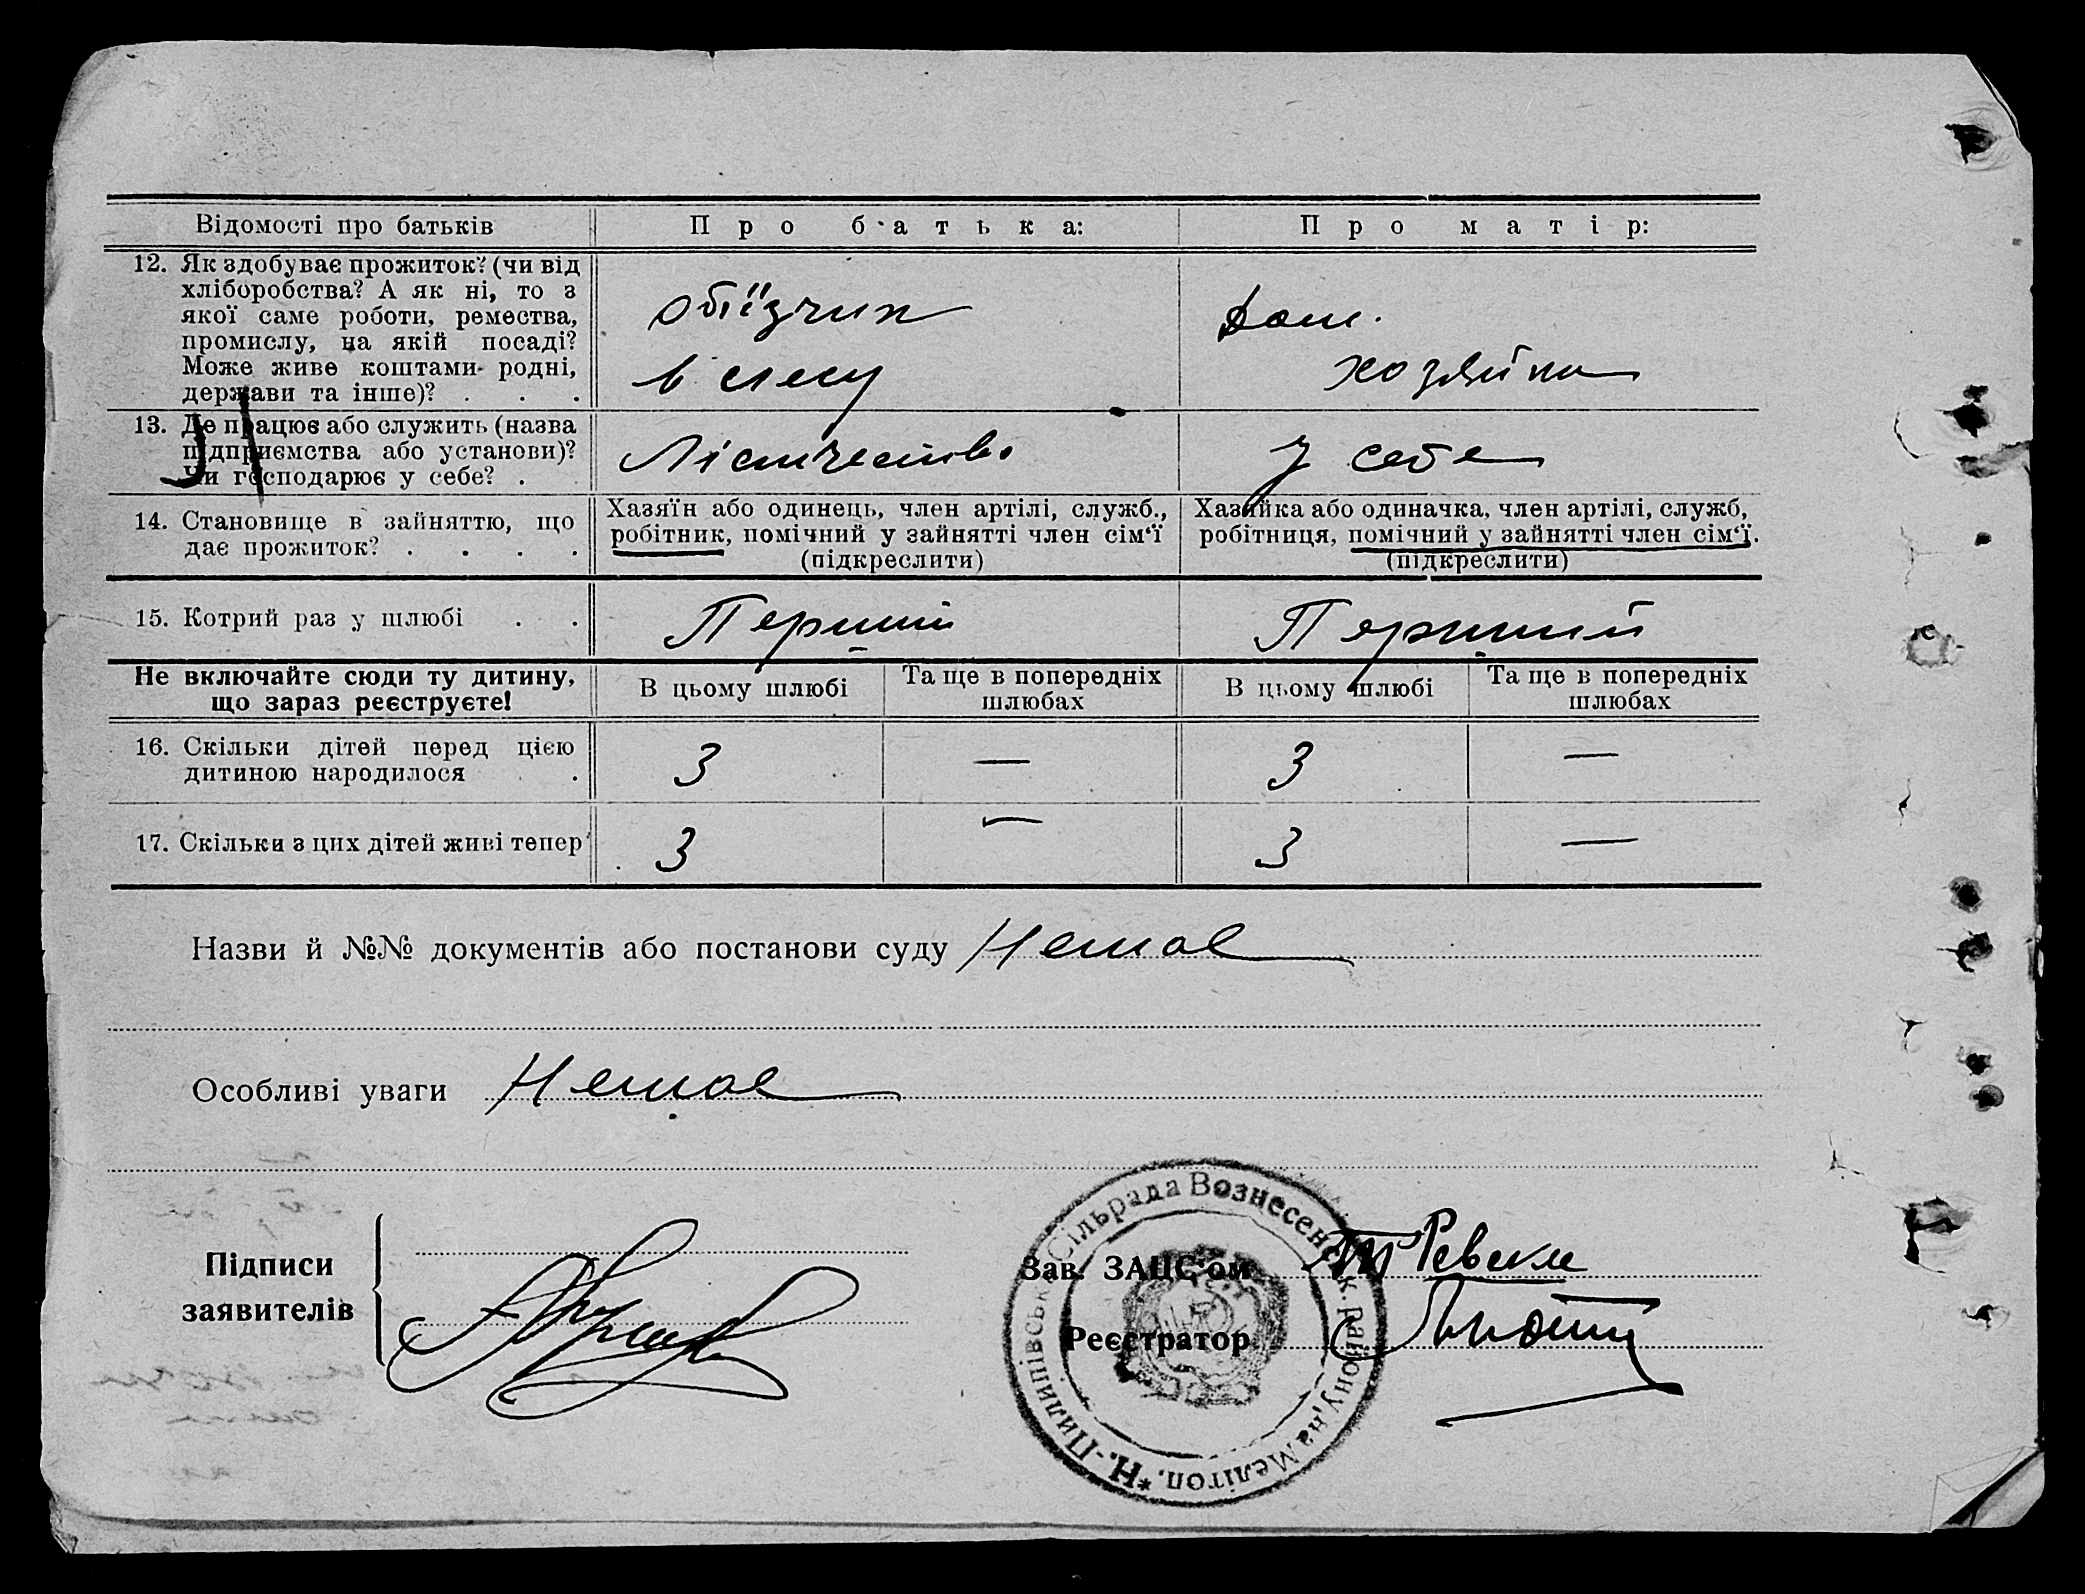 Відомості про батьків
Про батька:
Про матір:
12. Як здобуває прожиток? (чи від
хліборобства? А як ні, то з
якої саме роботи, ремества,
промислу, на якій посаді?
Може живе коштами родні,
держави та інше)? . . .
обїзчик
в лесу
Дом.
хозяйка
13. Де працює або служить (назва
підприємства або установи)?
Чи господарює у себе? .
Лісничество
У себе
14. Становище в зайняттю, що
дає прожиток? . . . .
Хазяїн або одинець, член артілі, служб.,
робітник, помічний у зайнятті член сім'ї
(підкреслити)
Хазяйка або одиначка, член артілі, служб,
робітниця, помічний у зайнятті член сім'ї.
(підкреслити)
15. Котрий раз у шлюбі . .
Перший
Перший
Не включайте сюди ту дитину,
що зараз реєструєте!
В цьому шлюбі
Та ще в попередніх
шлюбах
В цьому шлюбі
Та ще в попередніх
шлюбах
16. Скільки дітей перед цією
дитиною народилося .
3 — 3 —
17. Скільки з цих дітей живі тепер
3 — 3 —
Назви й №№ документів або постанови суду Немає
Особливі уваги Немає
Підписи
заявителів
Зав. ЗАЦС'ом
Реєстратор
Н.-Пилипівська Сільрада Вознесенськ. району, на Мелітоп.